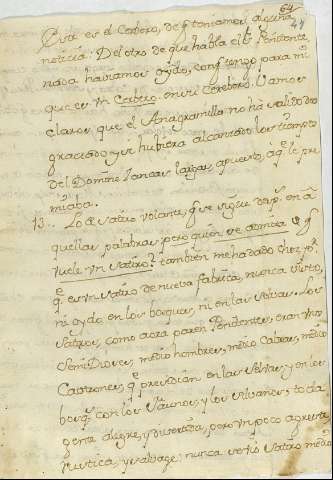 64
Este es el Cerbero, de q teniamos alguna
noticia. Del otro de que habla el P. Penitente
nada haviamos oydo, conq tengo para mi
que es un Cerbero sin ser Cerbero. Vamos
claros, que el Anagramilla no ha salido
graciado, y si hubiera alcanzado los tiempos
del Domine Lancas largas, apuesto, à q le pre
miaba.
13. Lo de Satiro volante, que sigue desp. en a
quellas palabras pero quien se admira q
vuele un Satiro? tambien me ha dado chez, p.
q es un Satiro de nueva fabrica, nunca visto,
ni oydo en los bosques, ni en las selvas. Los
Satiros, como aora paren Pendientes, eran unos
Semi Dioses, medio hombres, medio Cabras, medio
Cabrones, q presidian en las Selvas, y en los
bosq. con los Faunos, y los Silvanos, toda
gente alegre, y divertida, pero un poco agreste
rustica, y salvage: nunca se vio Satiro medio